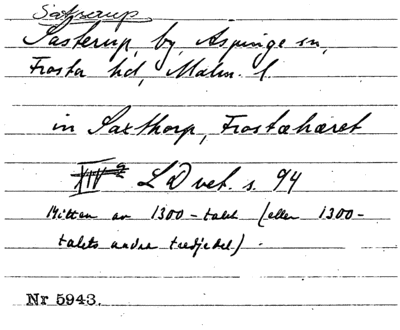 Satserup
Sasterup, by, Aspinge sn,
Frosta hd, Malm. l.
in Saxthorp, Frostæhæret
XIV 2 LDvet. s. 94
Mitten av 1300-talet (eller 1300-
talets andra tredjedel).
Nr 5943.